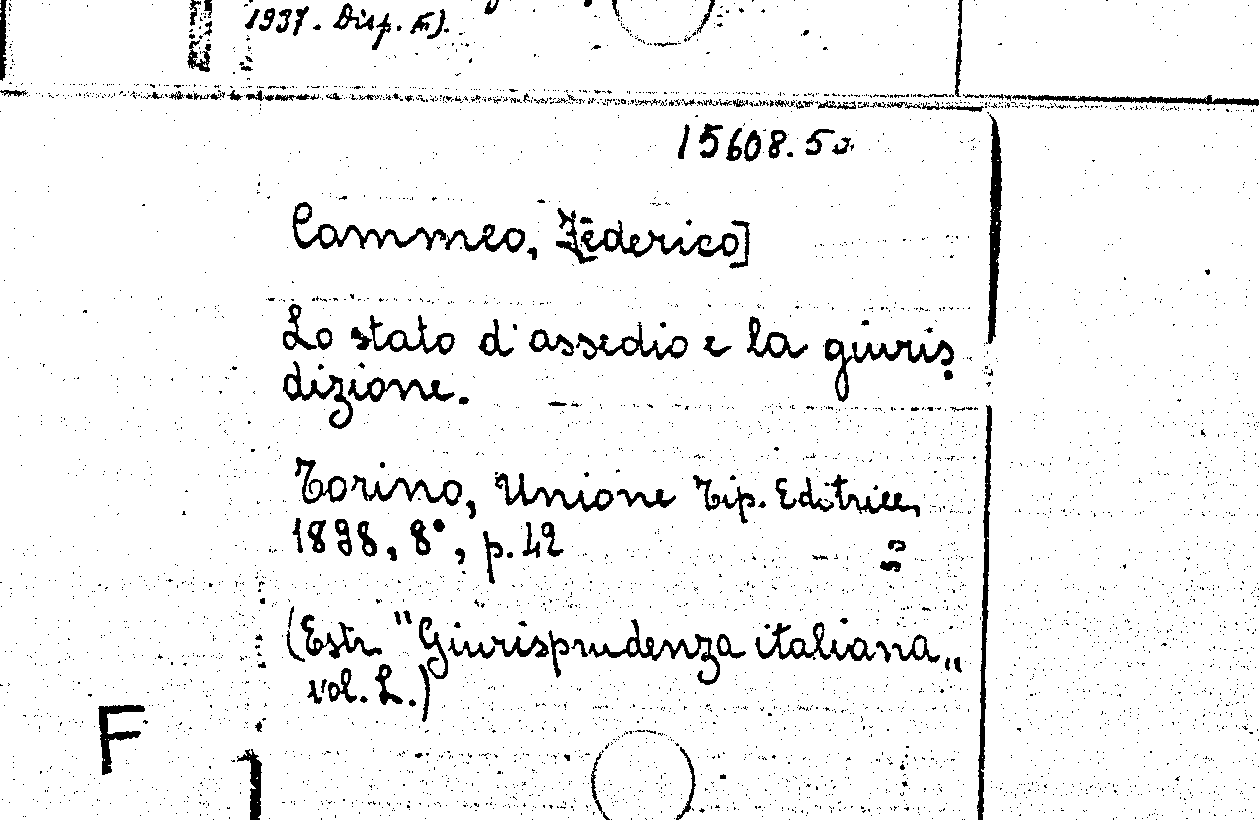 1937. Disp. F).
15608.50
Cammeo, Federico]
Lo stato d'assedio e la giuris
dizione.
Torino, Unione Tip. Editrice,
1898, 8°, p. 42
53
(Estr. "Giurisprudenza italiana„
vol. L.)
F